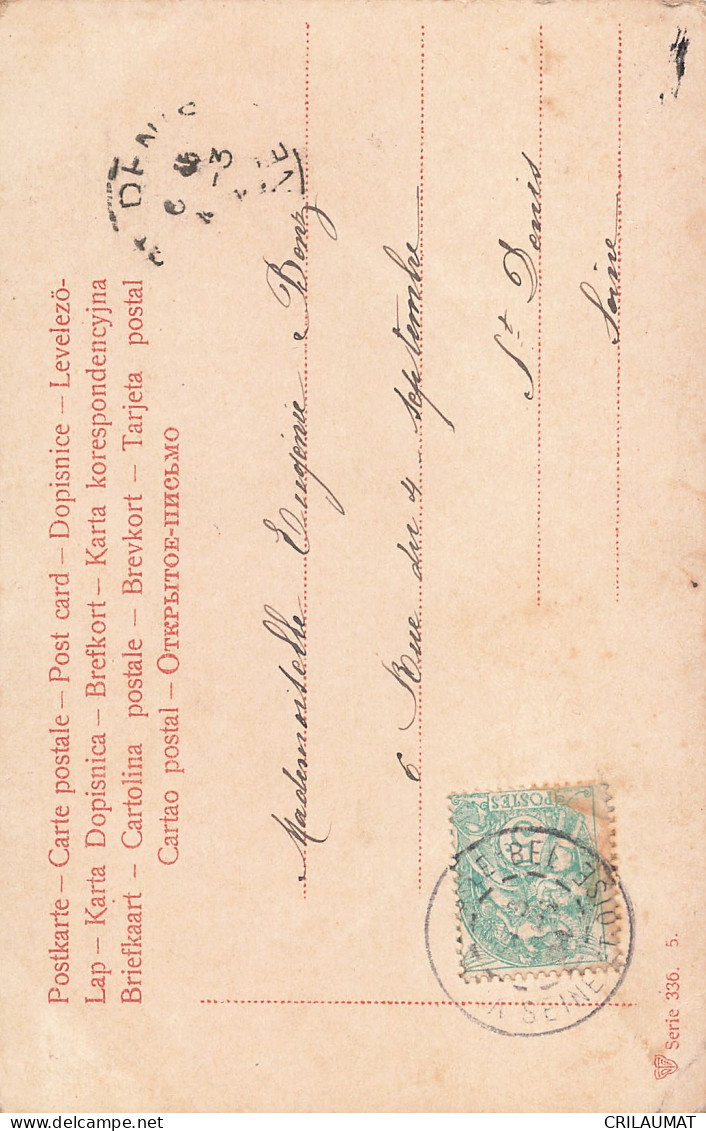 Postkarte – Carte postale – Post card – Dopisnice – Levelezö-
Lap – Karta Dopisnica – Brefkort – Karta korespondencyjna
Briefkaart – Cartolina postale – Brevkort – Tarjeta postal
Cartao postal – Открытое-письмо
Mademoiselle Eugénie Bentz
6 Rue du 4 septembre
St Denis
Seine
POSTES
SEINE-ET-OISE
Serie 336. 5.
CRILAUMAT